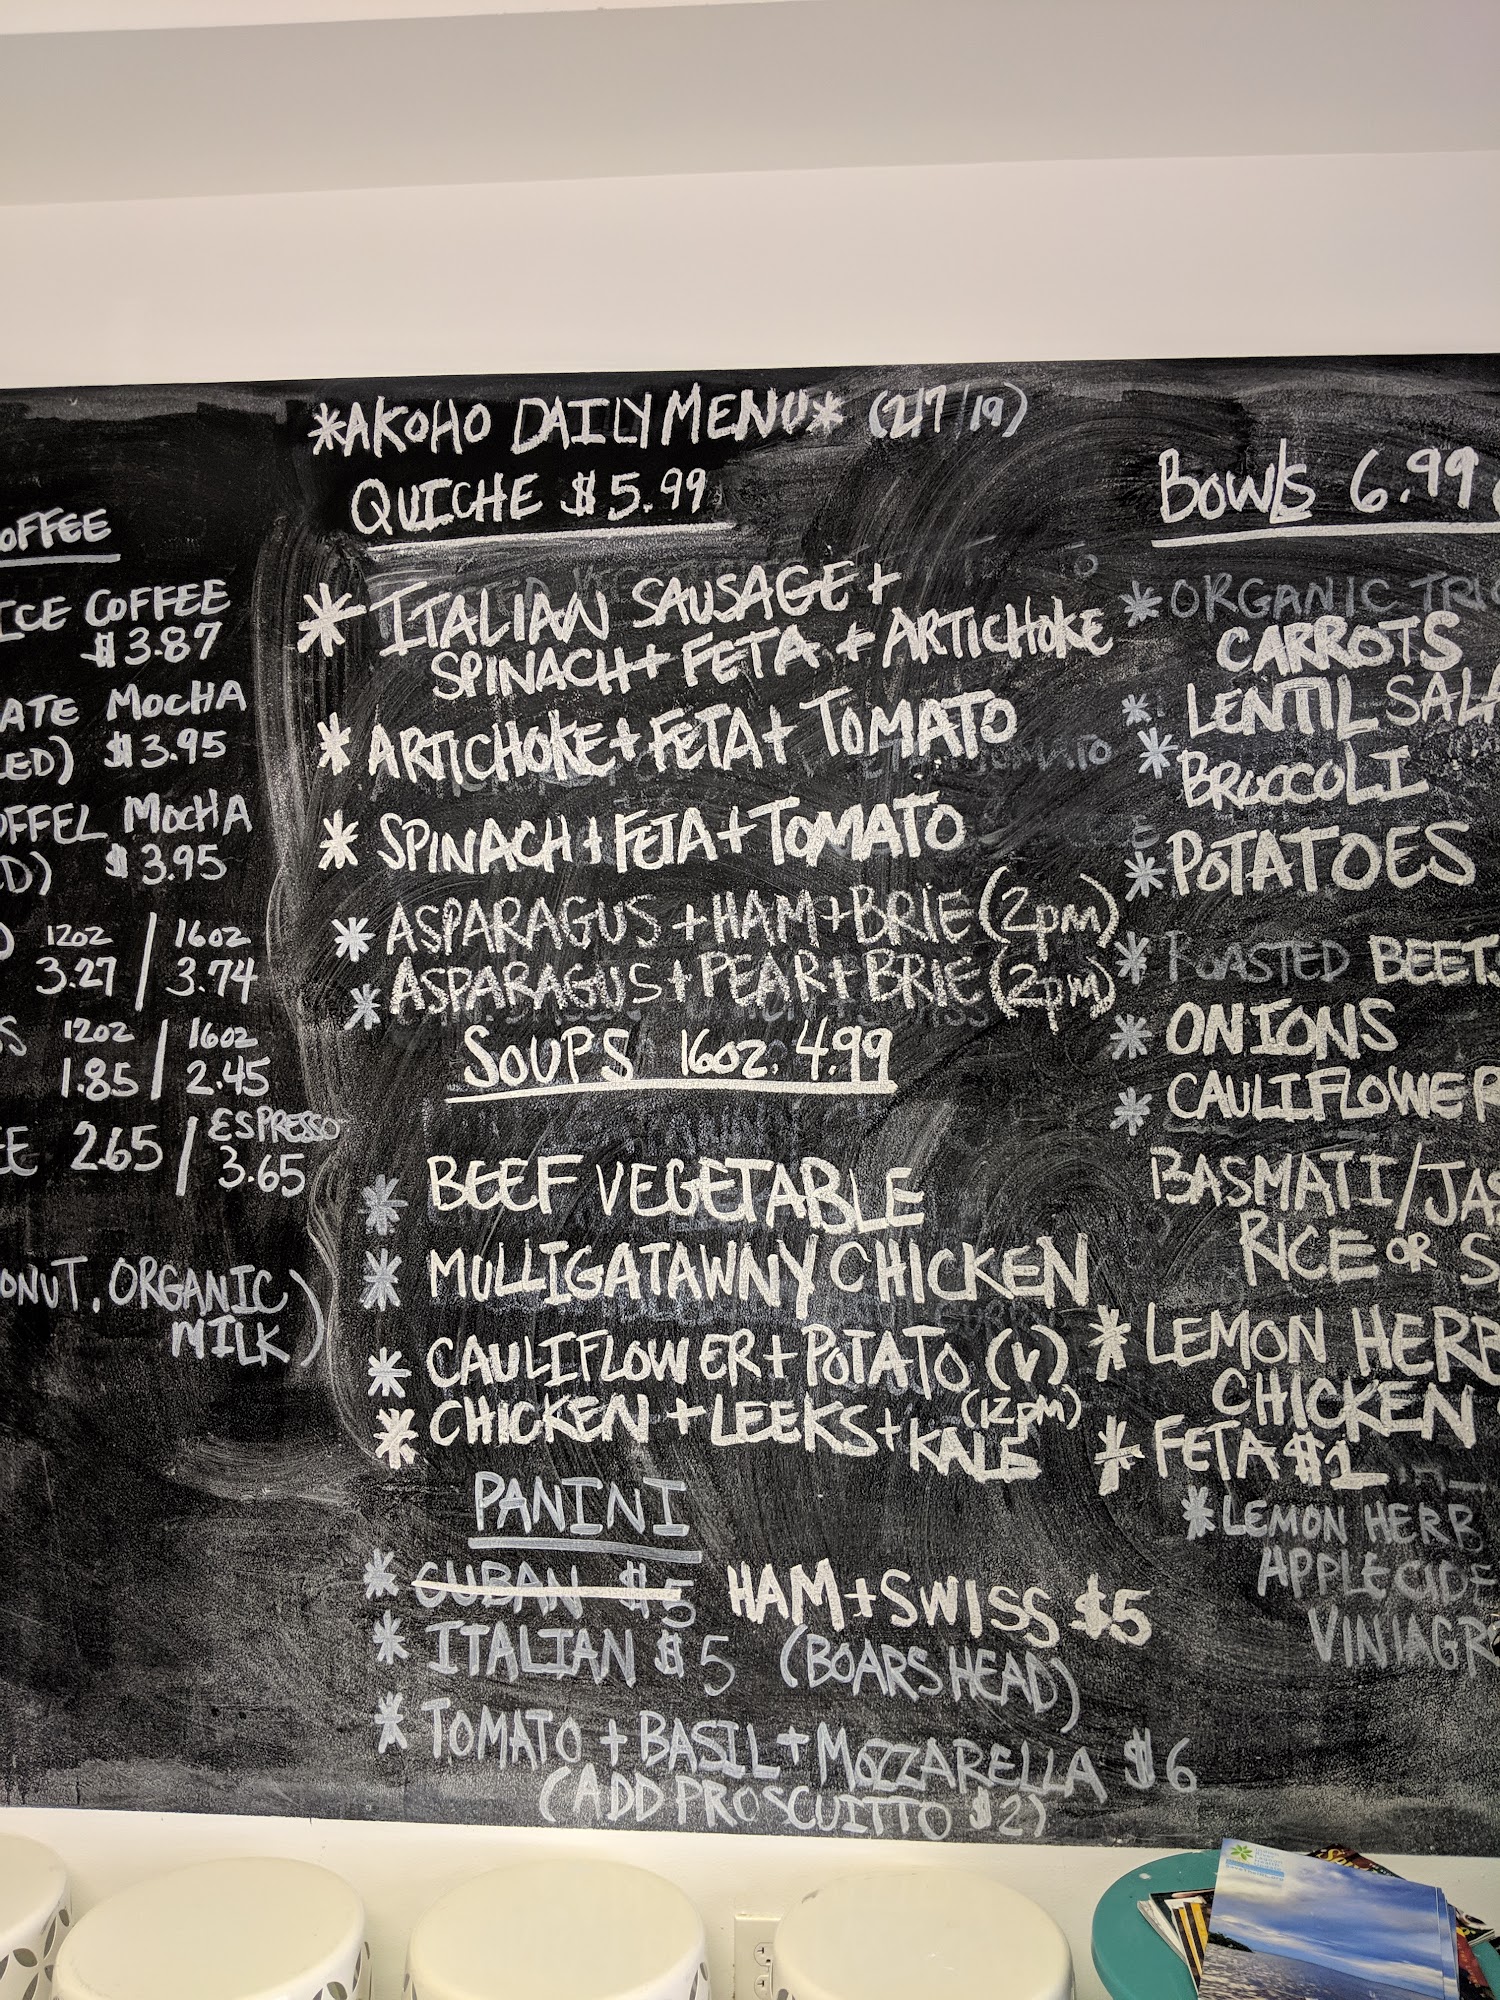 *AKOHO DAILY MENU* (2/7/19)
QUICHE $5.99
* ITALIAN SAUSAGE +
SPINACH + FETA + ARTICHOKE
* ARTICHOKE + FETA + TOMATO
* SPINACH + FETA + TOMATO
* ASPARAGUS + HAM + BRIE (2pm)
* ASPARAGUS + PEAR + BRIE (2pm)
SOUPS 16oz. 4.99
* BEEF VEGETABLE
* MULLIGATAWNY CHICKEN
* CAULIFLOWER + POTATO (V)
* CHICKEN + LEEKS + KALE (12pm)
PANINI
* CUBAN $5 HAM + SWISS $5
* ITALIAN $5 (BOARS HEAD)
* TOMATO + BASIL + MOZZARELLA $6
(ADD PROSCUITTO $2)
OFFEE
ICE COFFEE
$3.87
ATE MOCHA
LED) $3.95
OFFEL MOCHA
D) $3.95
O 12oz / 16oz
3.27 / 3.74
S 12oz / 16oz
1.85 / 2.45
EE 2.65 / ESPRESSO
3.65
ONUT, ORGANIC
MILK)
BOWLS 6.99
* ORGANIC TRI
CARROTS
* LENTIL SALA
* BROCCOLI
* POTATOES
* ROASTED BEETS
* ONIONS
* CAULIFLOWER
BASMATI/JAS
RICE OR S
* LEMON HERB
CHICKEN
* FETA $1
* LEMON HERB
APPLE CIDE
VINIAGR